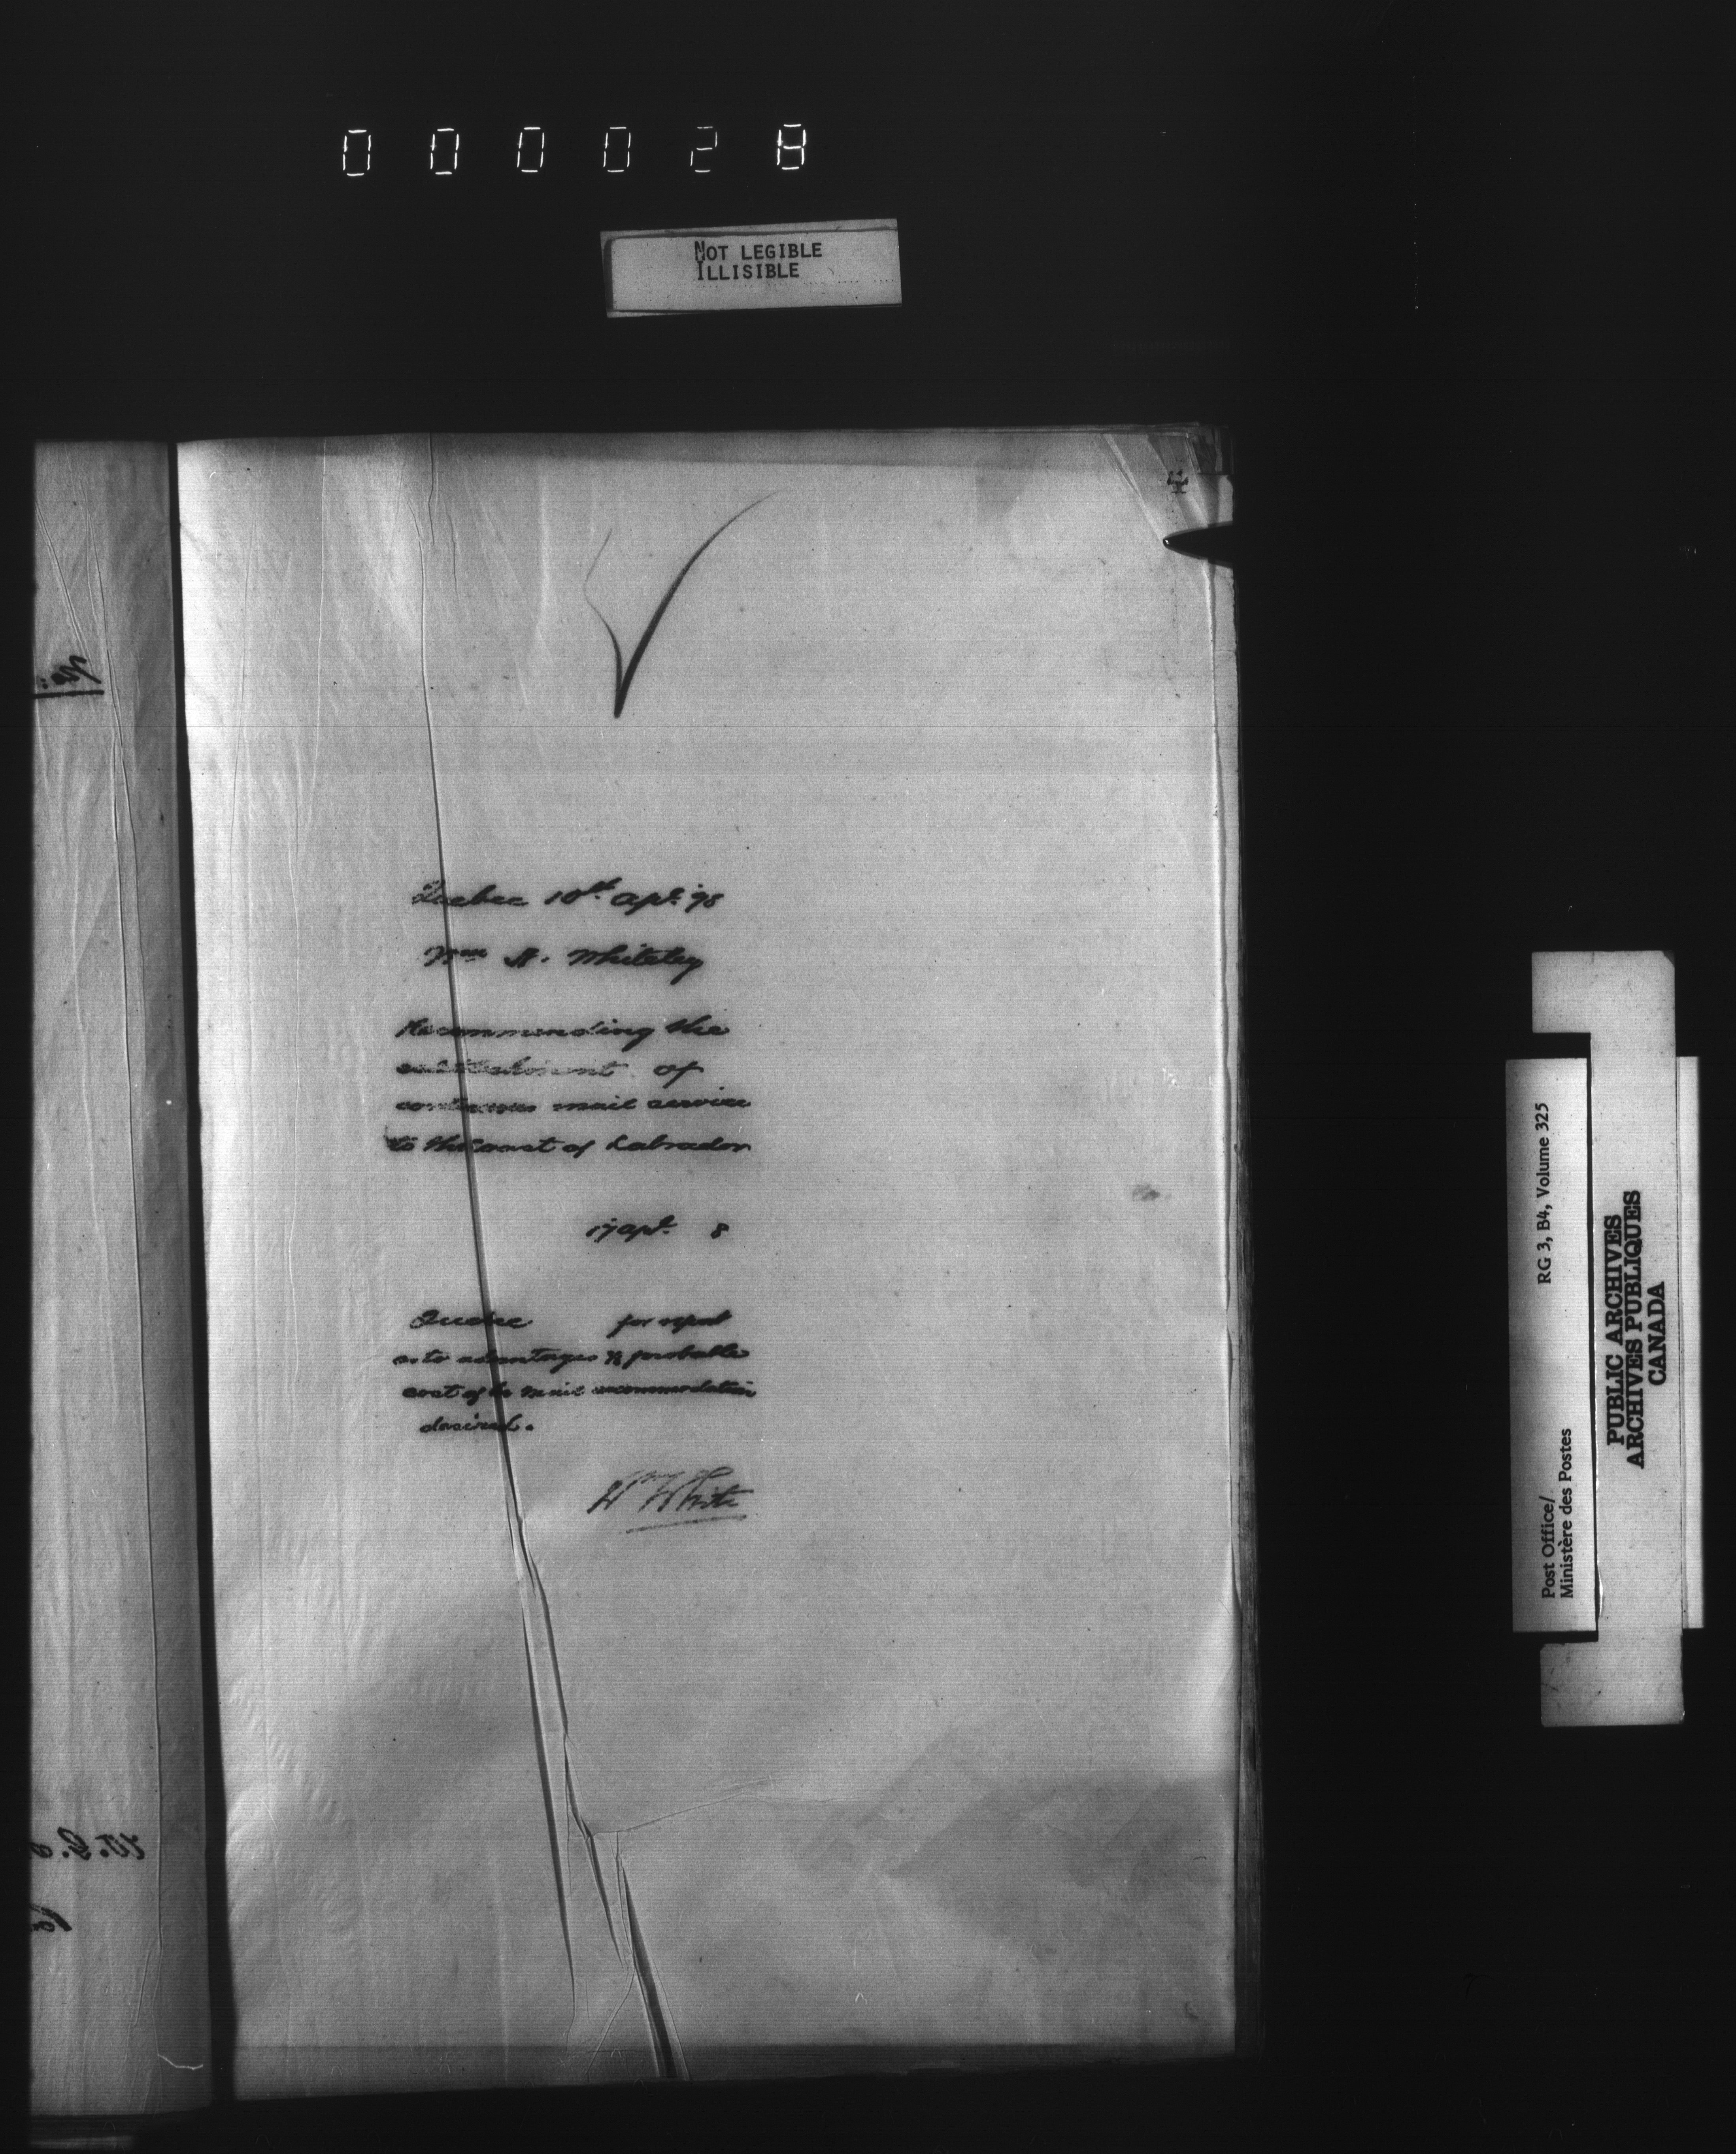 000028
NOT LEGIBLE
ILLISIBLE
Quebec 10th Apl. '98
Wm H. Whiteley
Recommending the
establishment of
continuous mail service
to the coast of Labrador
17 Apl. 8
Quebec for report
as to advantages & probable
cost of the mail accommodation
desired.
Wm White
RG 3, B4, Volume 325
Post Office/
Ministère des Postes
PUBLIC ARCHIVES
ARCHIVES PUBLIQUES
CANADA